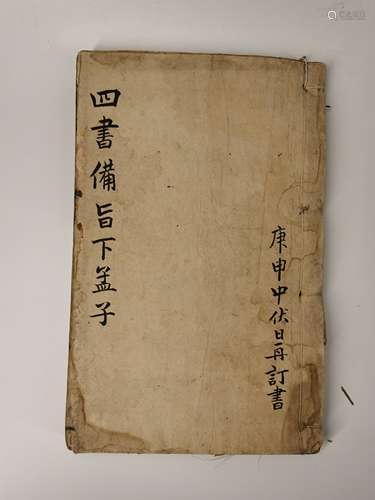 庚申中伏日再訂書
四書備旨下孟子